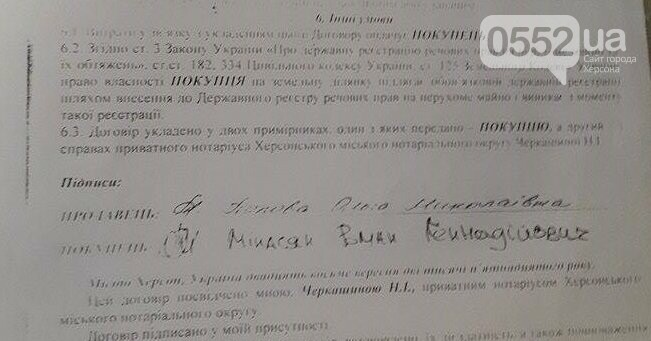 0552.ua
Сайт города
Херсона
6. Інші умови
6.1. Витрати у зв'язку з укладенням цього Договору оплачує ПОКУПЕЦЬ
6.2. Згідно ст. 3 Закону України «Про державну реєстрацію речових
їх обтяжень», ст.ст. 182, 334 Цивільного кодексу України, ст. 125
право власності ПОКУПЦЯ на земельну ділянку підлягає обов'язковій державній реєстрації
шляхом внесення до Державного реєстру речових прав на нерухоме майно і виникає з моменту
такої реєстрації.
6.3. Договір укладено у двох примірниках, один з яких передано – ПОКУПЦЮ, а другий
справах приватного нотаріуса Херсонського міського нотаріального округу Черкашиної Н.І.
Підписи:
ПРОДАВЕЦЬ: Ольга Миколаївна
ПОКУПЕЦЬ: Мінасян Геннадійович
Місто Херсон, Україна, двадцять вересня дві тисячі п'ятнадцятого року.
Цей договір посвідчено мною, Черкашиною Н.І., приватним нотаріусом Херсонського
міського нотаріального округу.
Договір підписано у моїй присутності.
а також повноваження